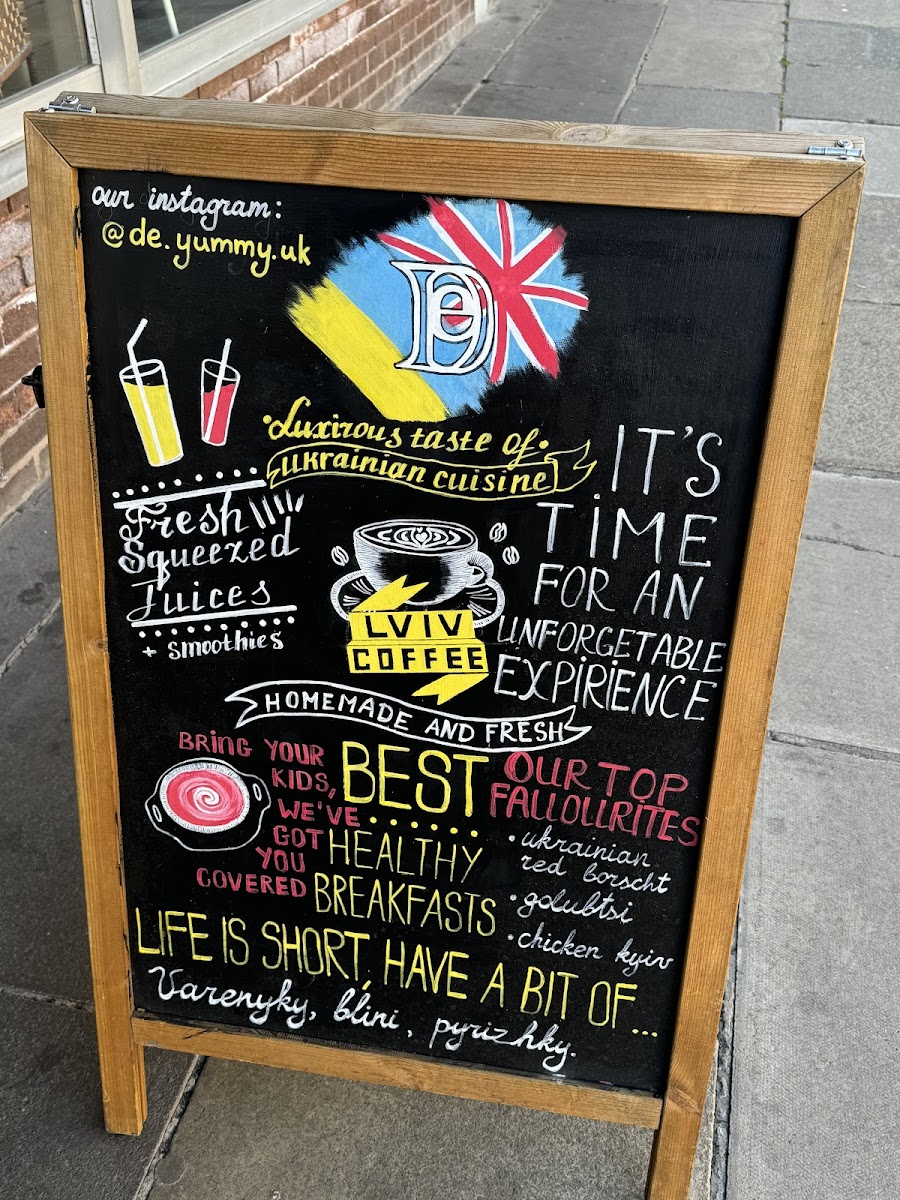 our instagram:
@de.yummy.uk
De
Luxirous taste of
Ukrainian cuisine
IT'S
TiME
FOR AN
UNFORGETABLE
EXPiRiENCE
Fresh
Squeezed
Juices
+ smoothies
LVIV
COFFEE
HOMEMADE AND FRESH
BRiNG YOUR
KIDS,
WE'VE
GOT
YOU
COVERED
BEST
HEALTHY
BREAKFASTS
OUR TOP
FALLOURITES
• ukrainian
red borscht
• golubtsi
• chicken kyiv
LIFE IS SHORT, HAVE A BIT OF...
Varenyky, blini, pyrizhky.